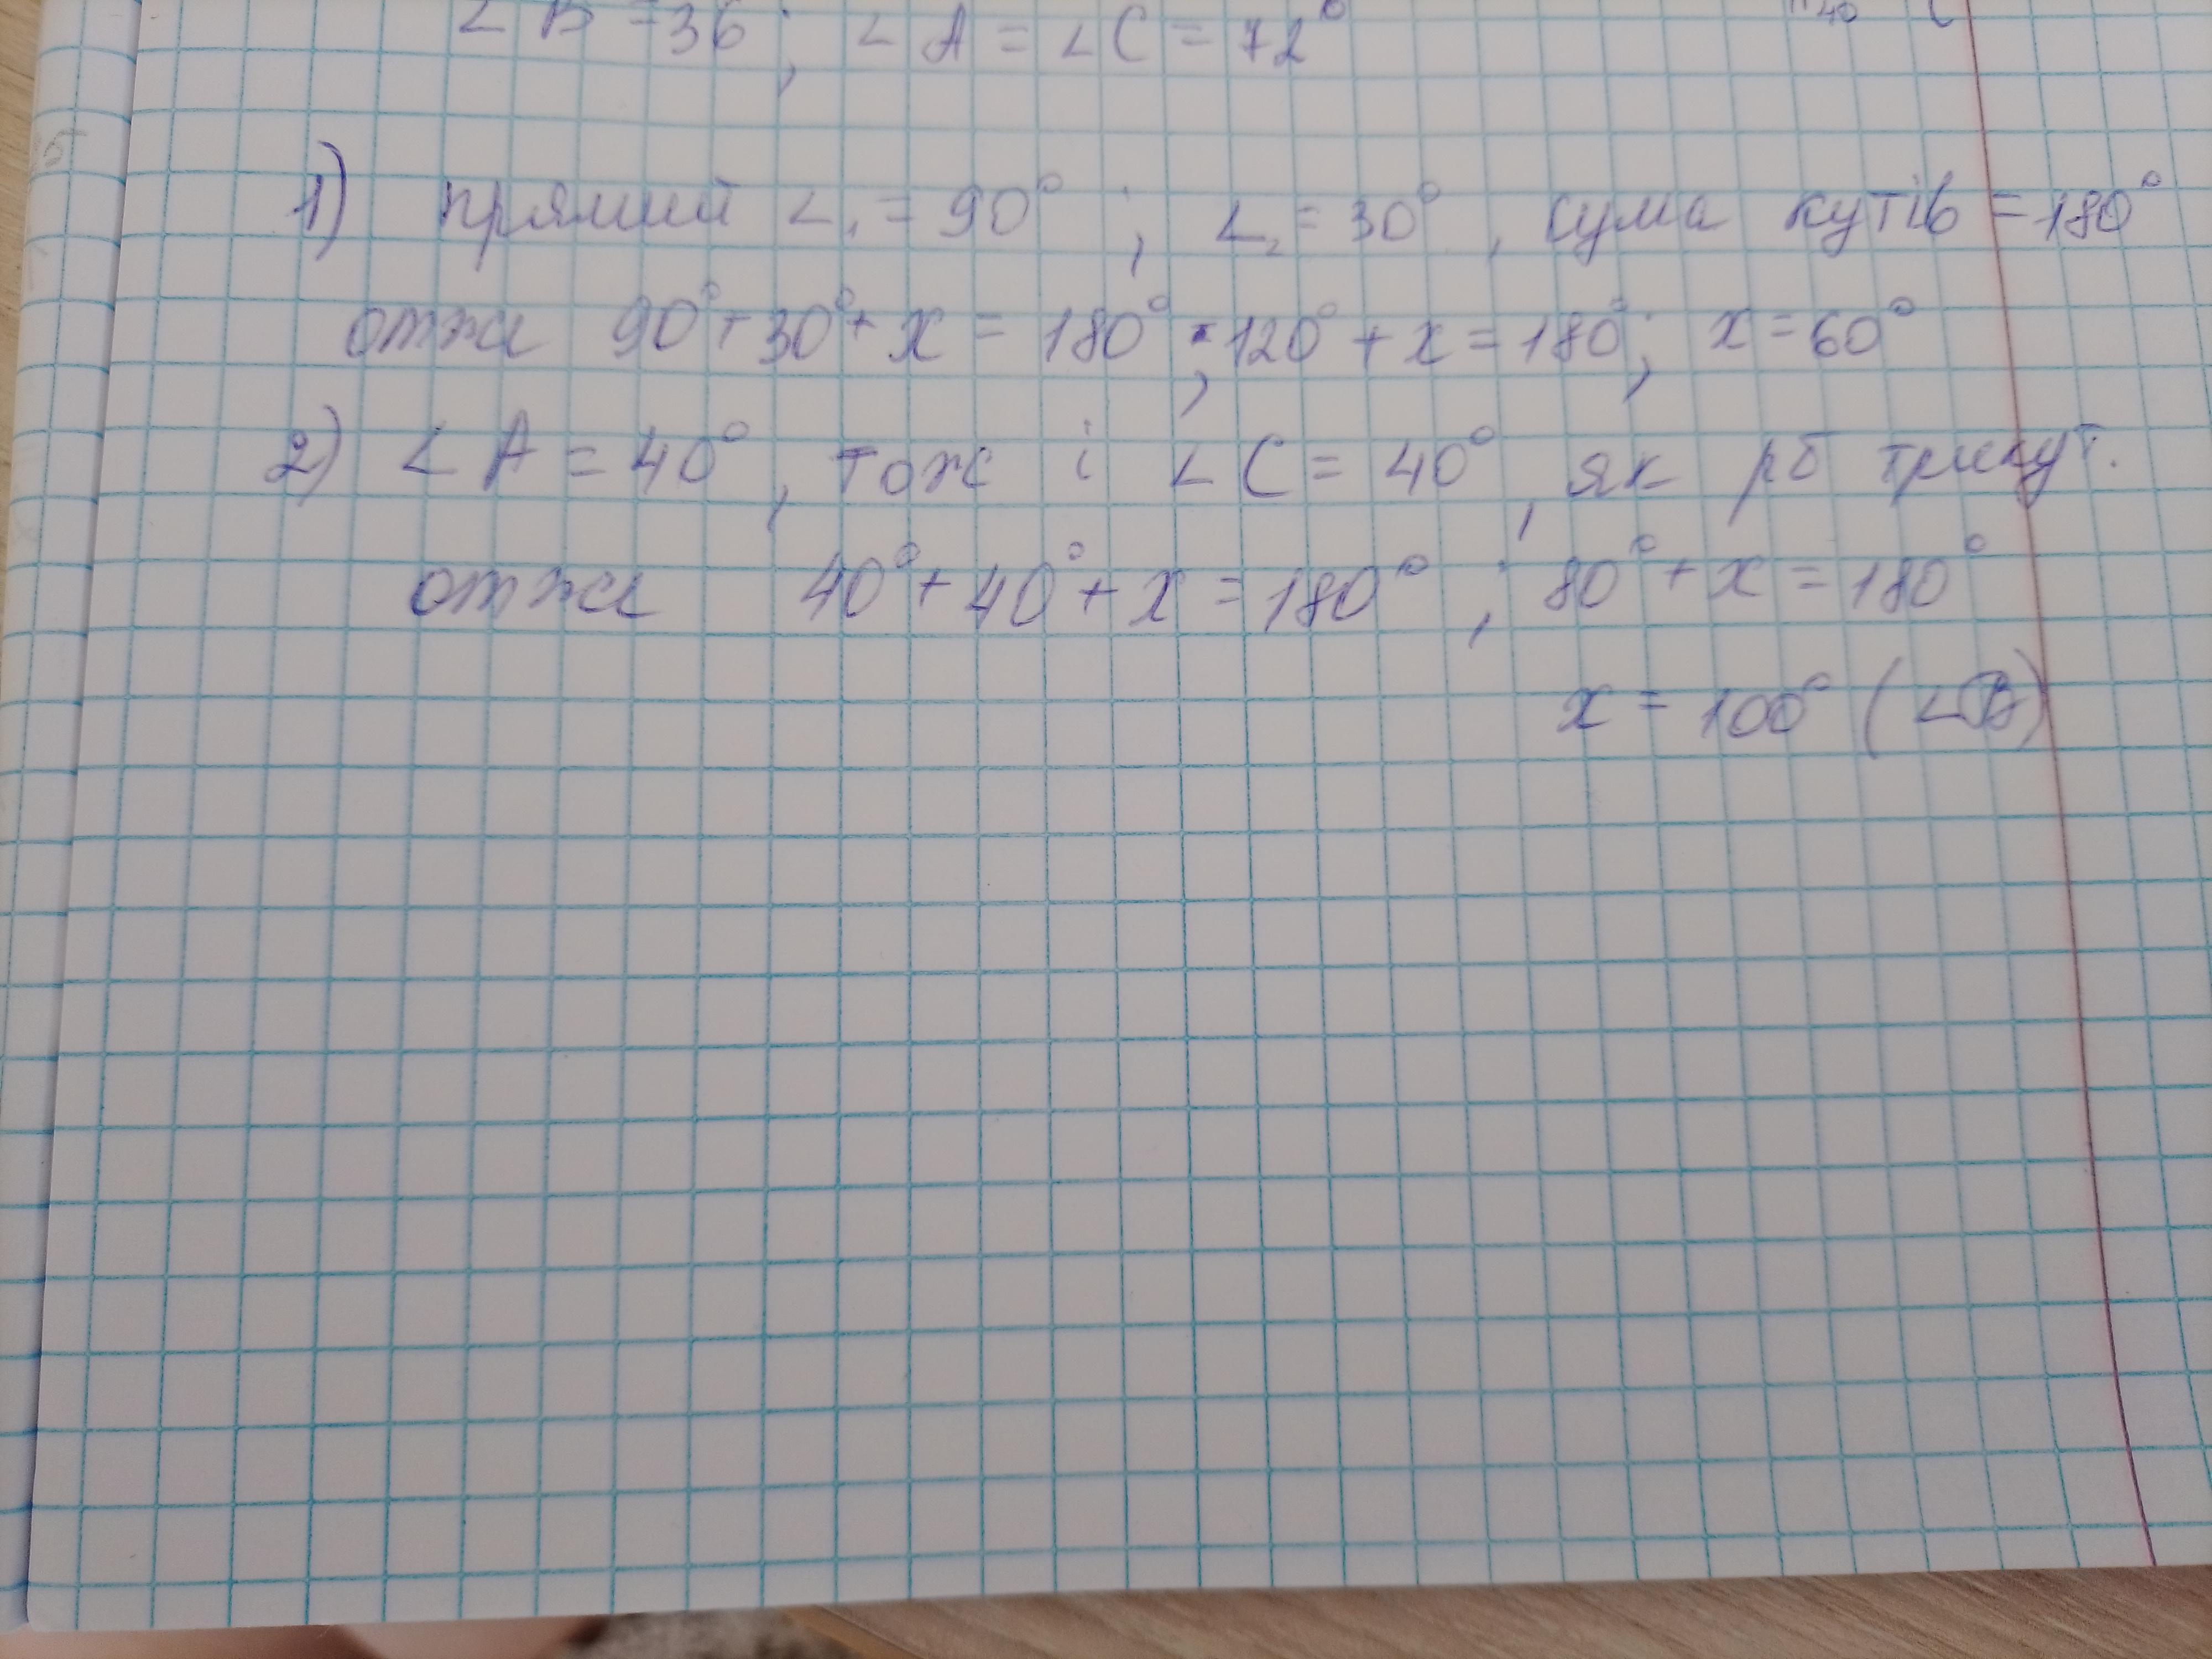 ∠B = 36°; ∠A = ∠C = 72°
1) прямий ∠₁ = 90°; ∠₂ = 30°, сума кутів = 180°
отже 90° + 30° + x = 180°; 120° + x = 180°; x = 60°
2) ∠A = 40°, тож і ∠C = 40°, як рб трикут.
отже 40° + 40° + x = 180°; 80° + x = 180°
x = 100° (∠B)